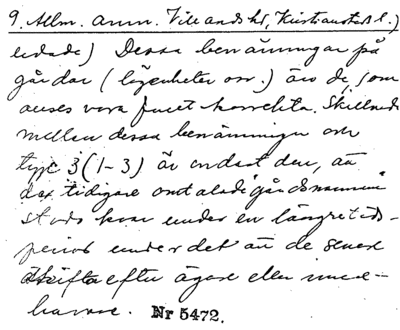 9. Allm. anm. Villands hd, Kristianstads l.)
ledade) Dessa benämningar på
gårdar (lägenheter osv.) äro de, som
anses vara fullt korrekta. Skillnad
mellan dessa benämningar och
typ 3 (1-3) är endast den, att
de tidigare omtalade "gårdsnamnen"
stods kvar under en längre tids-
period under det att de senare
skifta efter ägare eller inne-
havare. Nr 5472.